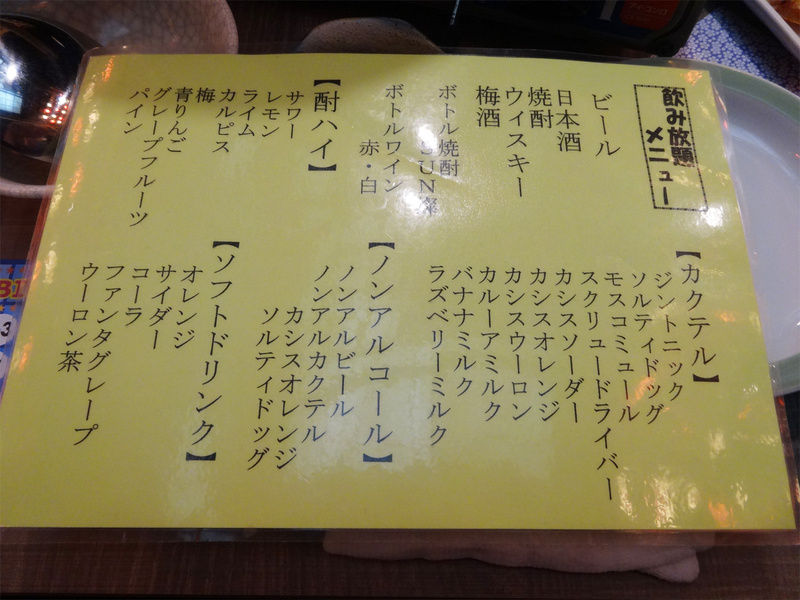 飲み放題
メニュー
ビール
日本酒
焼酎
ウィスキー
梅酒
ボトル焼酎
SUN燦
ボトルワイン
赤・白
【酎ハイ】
サワー
レモン
ライム
カルピス
梅
青りんご
グレープフルーツ
パイン
【カクテル】
ジントニック
ソルティドッグ
モスコミュール
スクリュードライバー
カシスソーダー
カシスオレンジ
カシスウーロン
カルーアミルク
バナナミルク
ラズベリーミルク
【ノンアルコール】
ノンアルビール
ノンアルカクテル
カシスオレンジ
ソルティドッグ
【ソフトドリンク】
オレンジ
サイダー
コーラ
ファンタグレープ
ウーロン茶
3